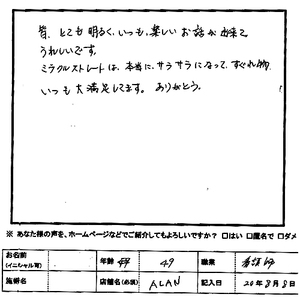 皆、とても明るく、いつも、楽しいお話が出来て
うれしいです。
ミラクルストレートは、本当に、サラサラになって、すぐれ物、
いつも大満足してます。ありがとう。
※ あなた様の声を、ホームページなどでご紹介してもよろしいですか? □はい □匿名で □ダメ
お名前
(イニシャル可)
年齢 49
職業 看護師
施術名
店舗名(必須) ALAN
記入日 20年8月8日